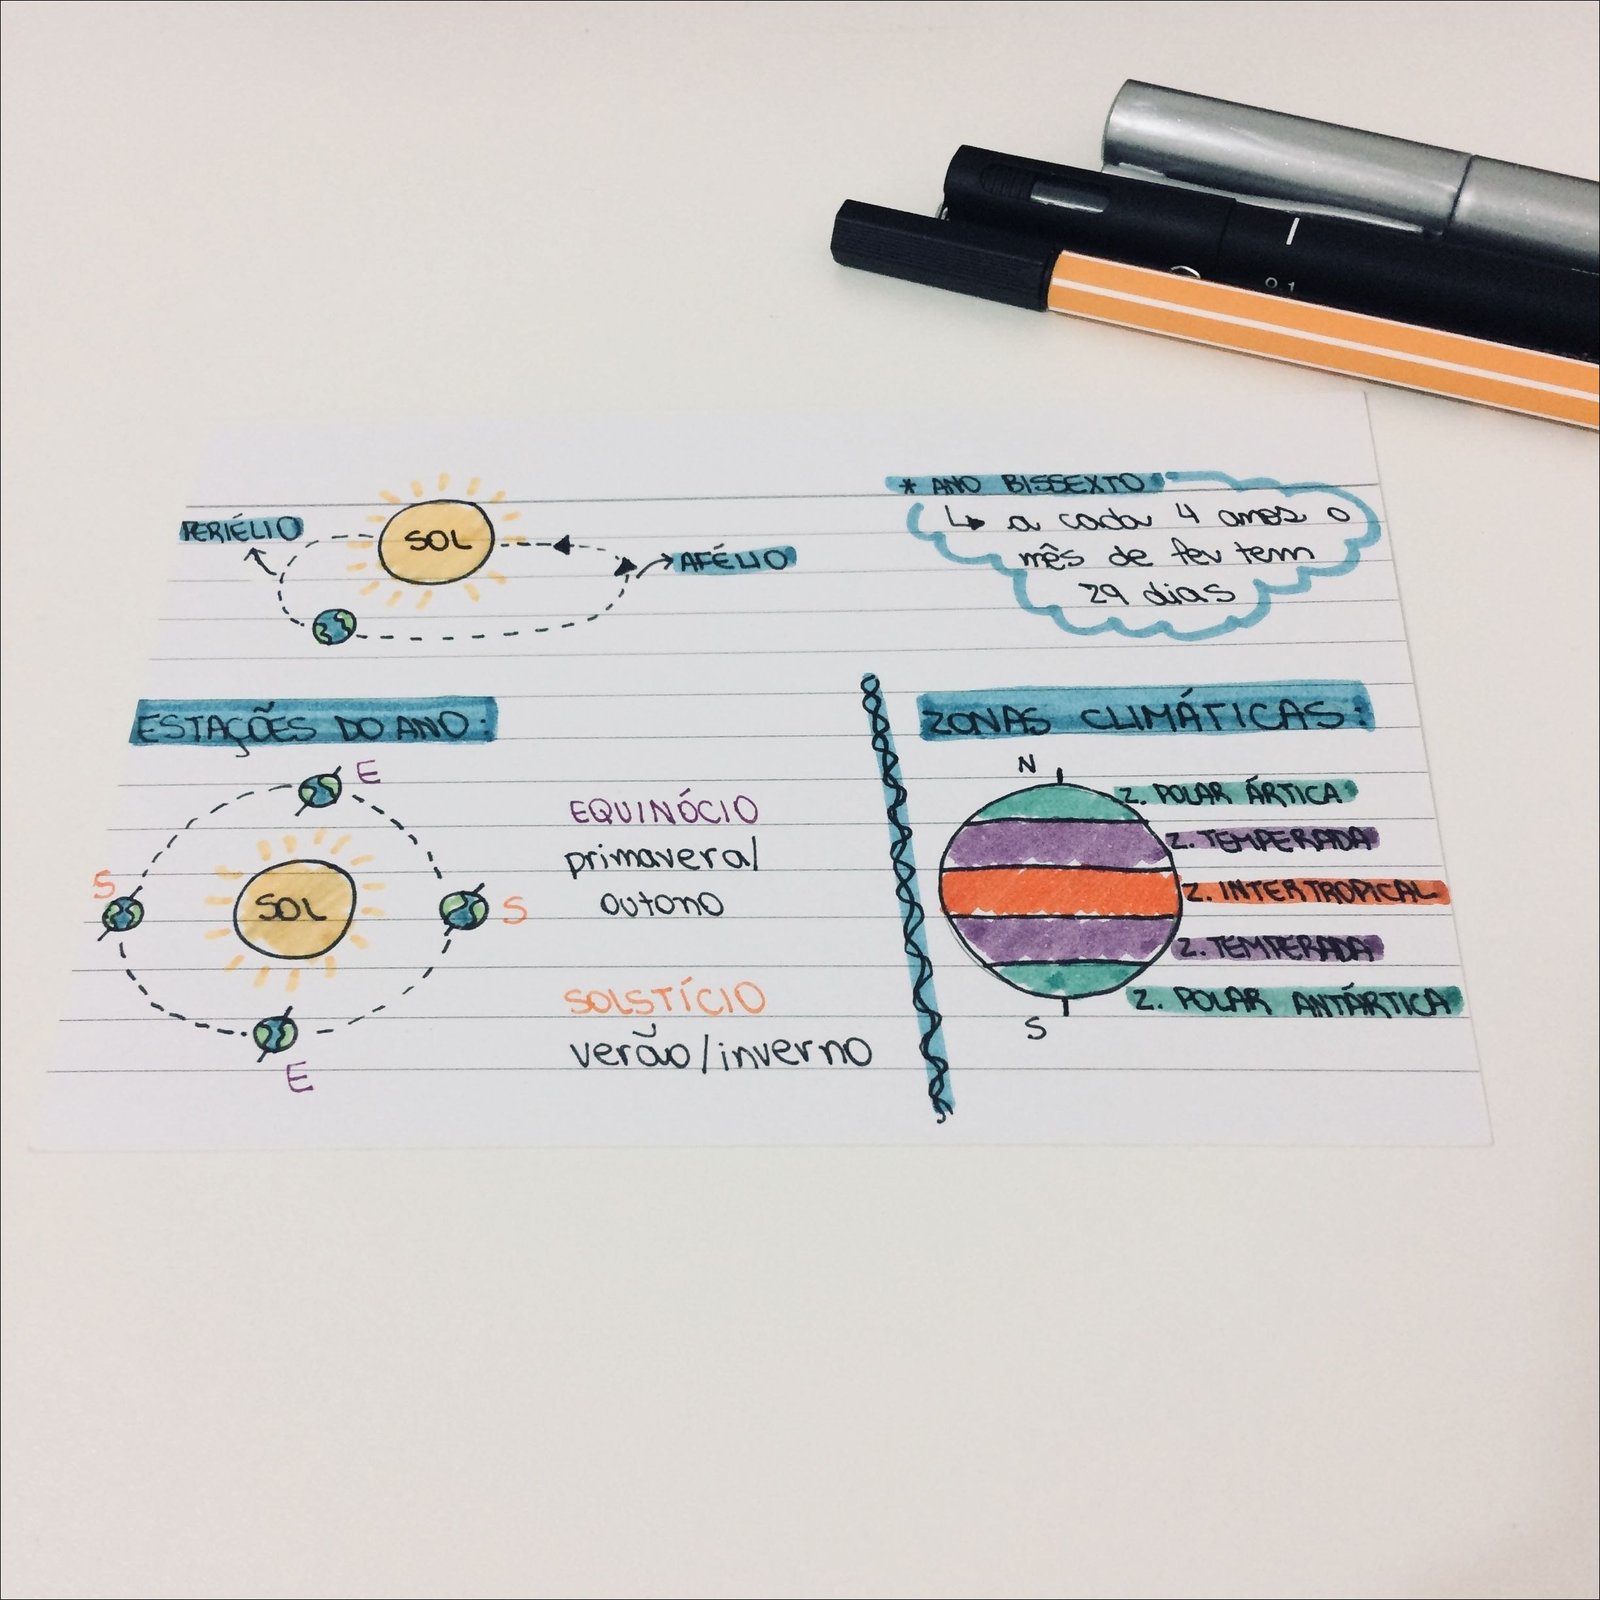 PERIÉLIO
SOL
AFÉLIO
* ANO BISSEXTO
↳ a cada 4 anos o
mês de fev tem
29 dias
ESTAÇÕES DO ANO:
E
S
SOL
S
E
EQUINÓCIO
primavera/
outono
SOLSTÍCIO
verão/inverno
ZONAS CLIMÁTICAS:
N
Z. POLAR ÁRTICA
Z. TEMPERADA
Z. INTERTROPICAL
Z. TEMPERADA
Z. POLAR ANTÁRTICA
S
0.1